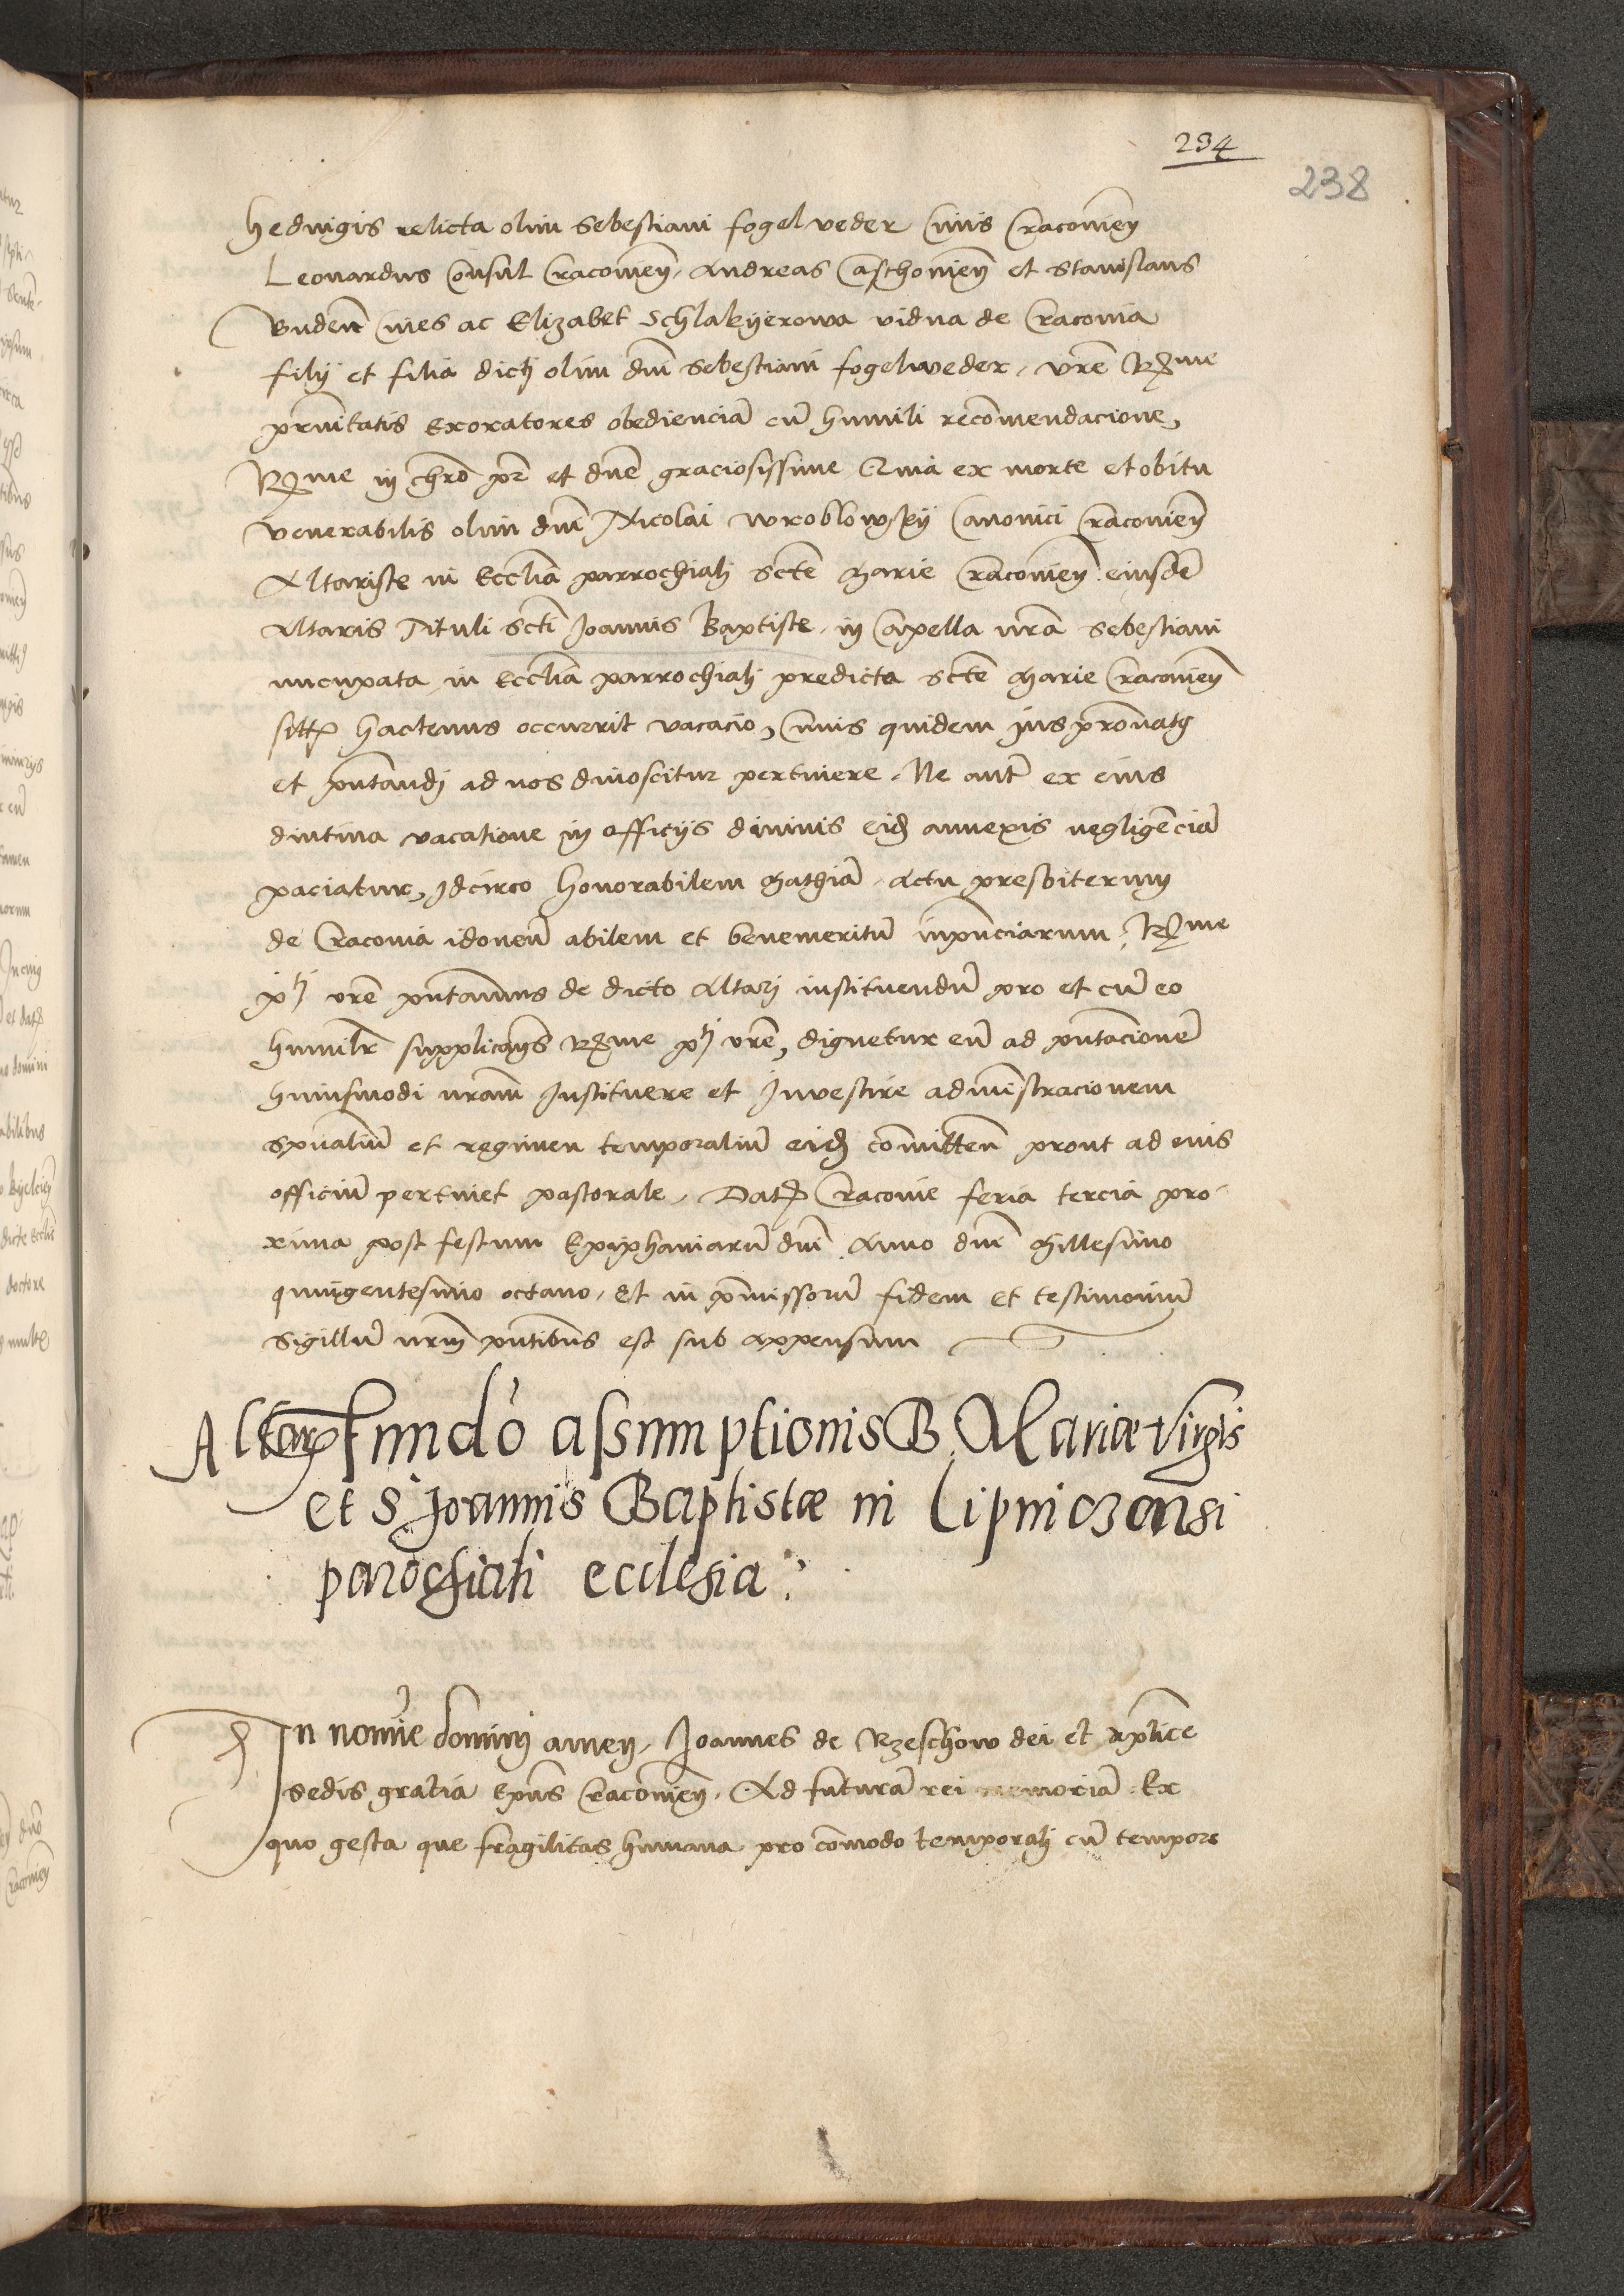 234
238
Hedvigis relicta olim Sebestiani fogelveder Civis Cracovień
Leonardus Consul Cracovień, Andreas Caschovień et Stanislaus
Budeń Cives ac Elizabet Schlakyerowa vidua de Cracovia
filij et filia dictj olim dnī Sebestiani fogelweder, vrē Rme
prnitatis Exoratores obedienciā cū humili recomendacione,
Rme in chrō pr et dnē graciosissime Quia ex morte et obitu
venerabilis olim dnī Nicolai Wroblowsky Canonici Cracovień
Altariste in Ecclīa parrochialj Scte Marie Cracovień eiusdē
Altaris Tituli Scti Joannis Baptiste, in Capella nrā Sebestiani
nucupata, in Ecclīa parrochialj predicta Scte Marie Cracovień
sitt hactenus occurrit vacacio, Cuius quidem jus pronatg
et pntandj ad nos dinoscitur pertinere, Ne aut ex eius
diutina vacatione in officijs divinis eid annexis negligēciā
paciatur, Idcirco honorabilem Mathiā, Actu presbiterum
de Cracovia idoneū abilem et benemeritū in pnciarum, Rme
ptj vrē pntamus de dicto Altarj instituendū pro et cū eo
humilr supplicans Rme ptj vrē, dignetur eū ad pntacionē
huiusmodi nram Instituere et Investire administracionem
spualiū et regimen temporaliū eid comitteń prout ad eius
officiū pertinet pastorale, Dat Cracovie feria tercia pro
xima post festum Epiphaniarū dnī Anno dnī Millesimo
quingentesimo octavo, Et in pmissorū fidem et testimoniū
Sigillū nrm pntibus est sub appensum
Altar fundō assumptionis B. Mariæ virgis
et S Joannis Baptistæ in Lipniczensi
parochiali ecclesia.
In nomie dominj amen, Joannes de Rzeschow dei et aplice
Sedis gratia Epus Cracovień, Ad futurā rei memoriā Ex
quo gesta que fragilitas humana pro cōmodo temporalj cū tempore